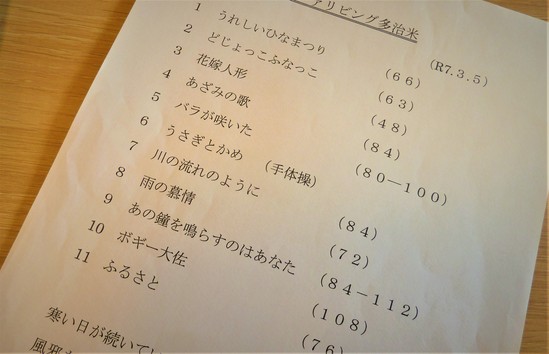 ァリビング多治米
(R7.3.5)
1 うれしいひなまつり (66)
2 どじょっこふなっこ (63)
3 花嫁人形 (48)
4 あざみの歌 (84)
5 バラが咲いた (80―100)
6 うさぎとかめ (手体操)
7 川の流れのように (84)
8 雨の慕情 (72)
9 あの鐘を鳴らすのはあなた (84-112)
10 ボギー大佐 (108)
11 ふるさと (76)
寒い日が続いてい
風邪